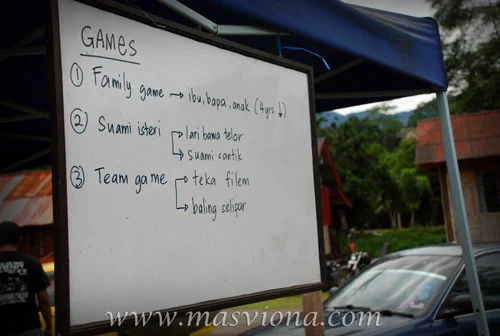 GAMES
① Family game → ibu, bapa, anak (4yrs ↓)
② Suami isteri → lari bawa telor
→ suami cantik
③ Team game → teka filem
→ baling selipar
www.masviona.com